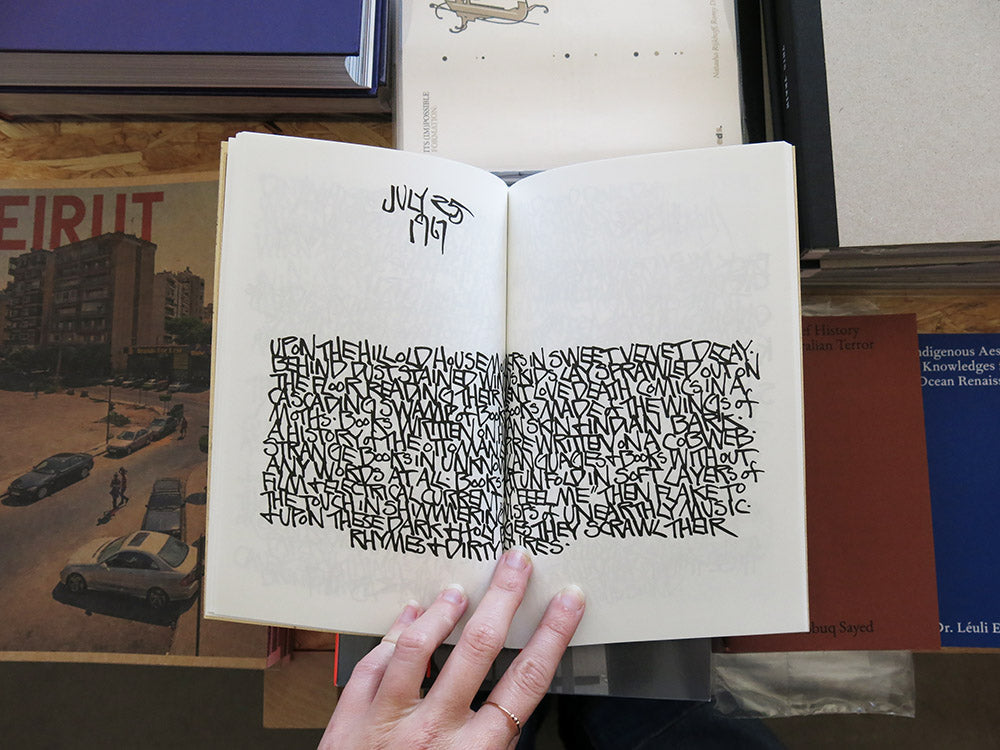 Natasha
ITS (IM)POSSIBLE
FORMATION.
EIRUT
JULY 25
1967
UPON THE HILL OLD HOUSE IN SWEET VELVET DECAY.
BEHIND DUST STAINED BOYS LAY SPRAWLED OUT ON
THE FLOOR READING THEIR LOVE DEATH COMICS IN A
CASCADING SWAMP of BOOKS. BOOKS MADE of THE WINGS of
MOTHS. BOOKS WRITTEN ON SKIN + INDIAN BARK.
A HISTORY of THE OTTOMAN WRITTEN ON A COBWEB.
STRANGE BOOKS IN UNKNOWN LANGUAGES + BOOKS WITHOUT
ANY WORDS AT ALL. BOOKS UNFOLD IN SOFT LAYERS of
FILM + ELECTRICAL CURRENT "FEEL ME" THEN FLAKE TO
THE TOUCH IN SHIMMERING + UNEARTHLY MUSIC.
+ UPON THESE DARK + HOLY THEY SCRAWL THEIR
RHYMES + DIRTY
ef History
ralian Terror
buq Sayed
ndigenous Aes
Knowledges
Ocean Renaiss
Dr. Léuli E